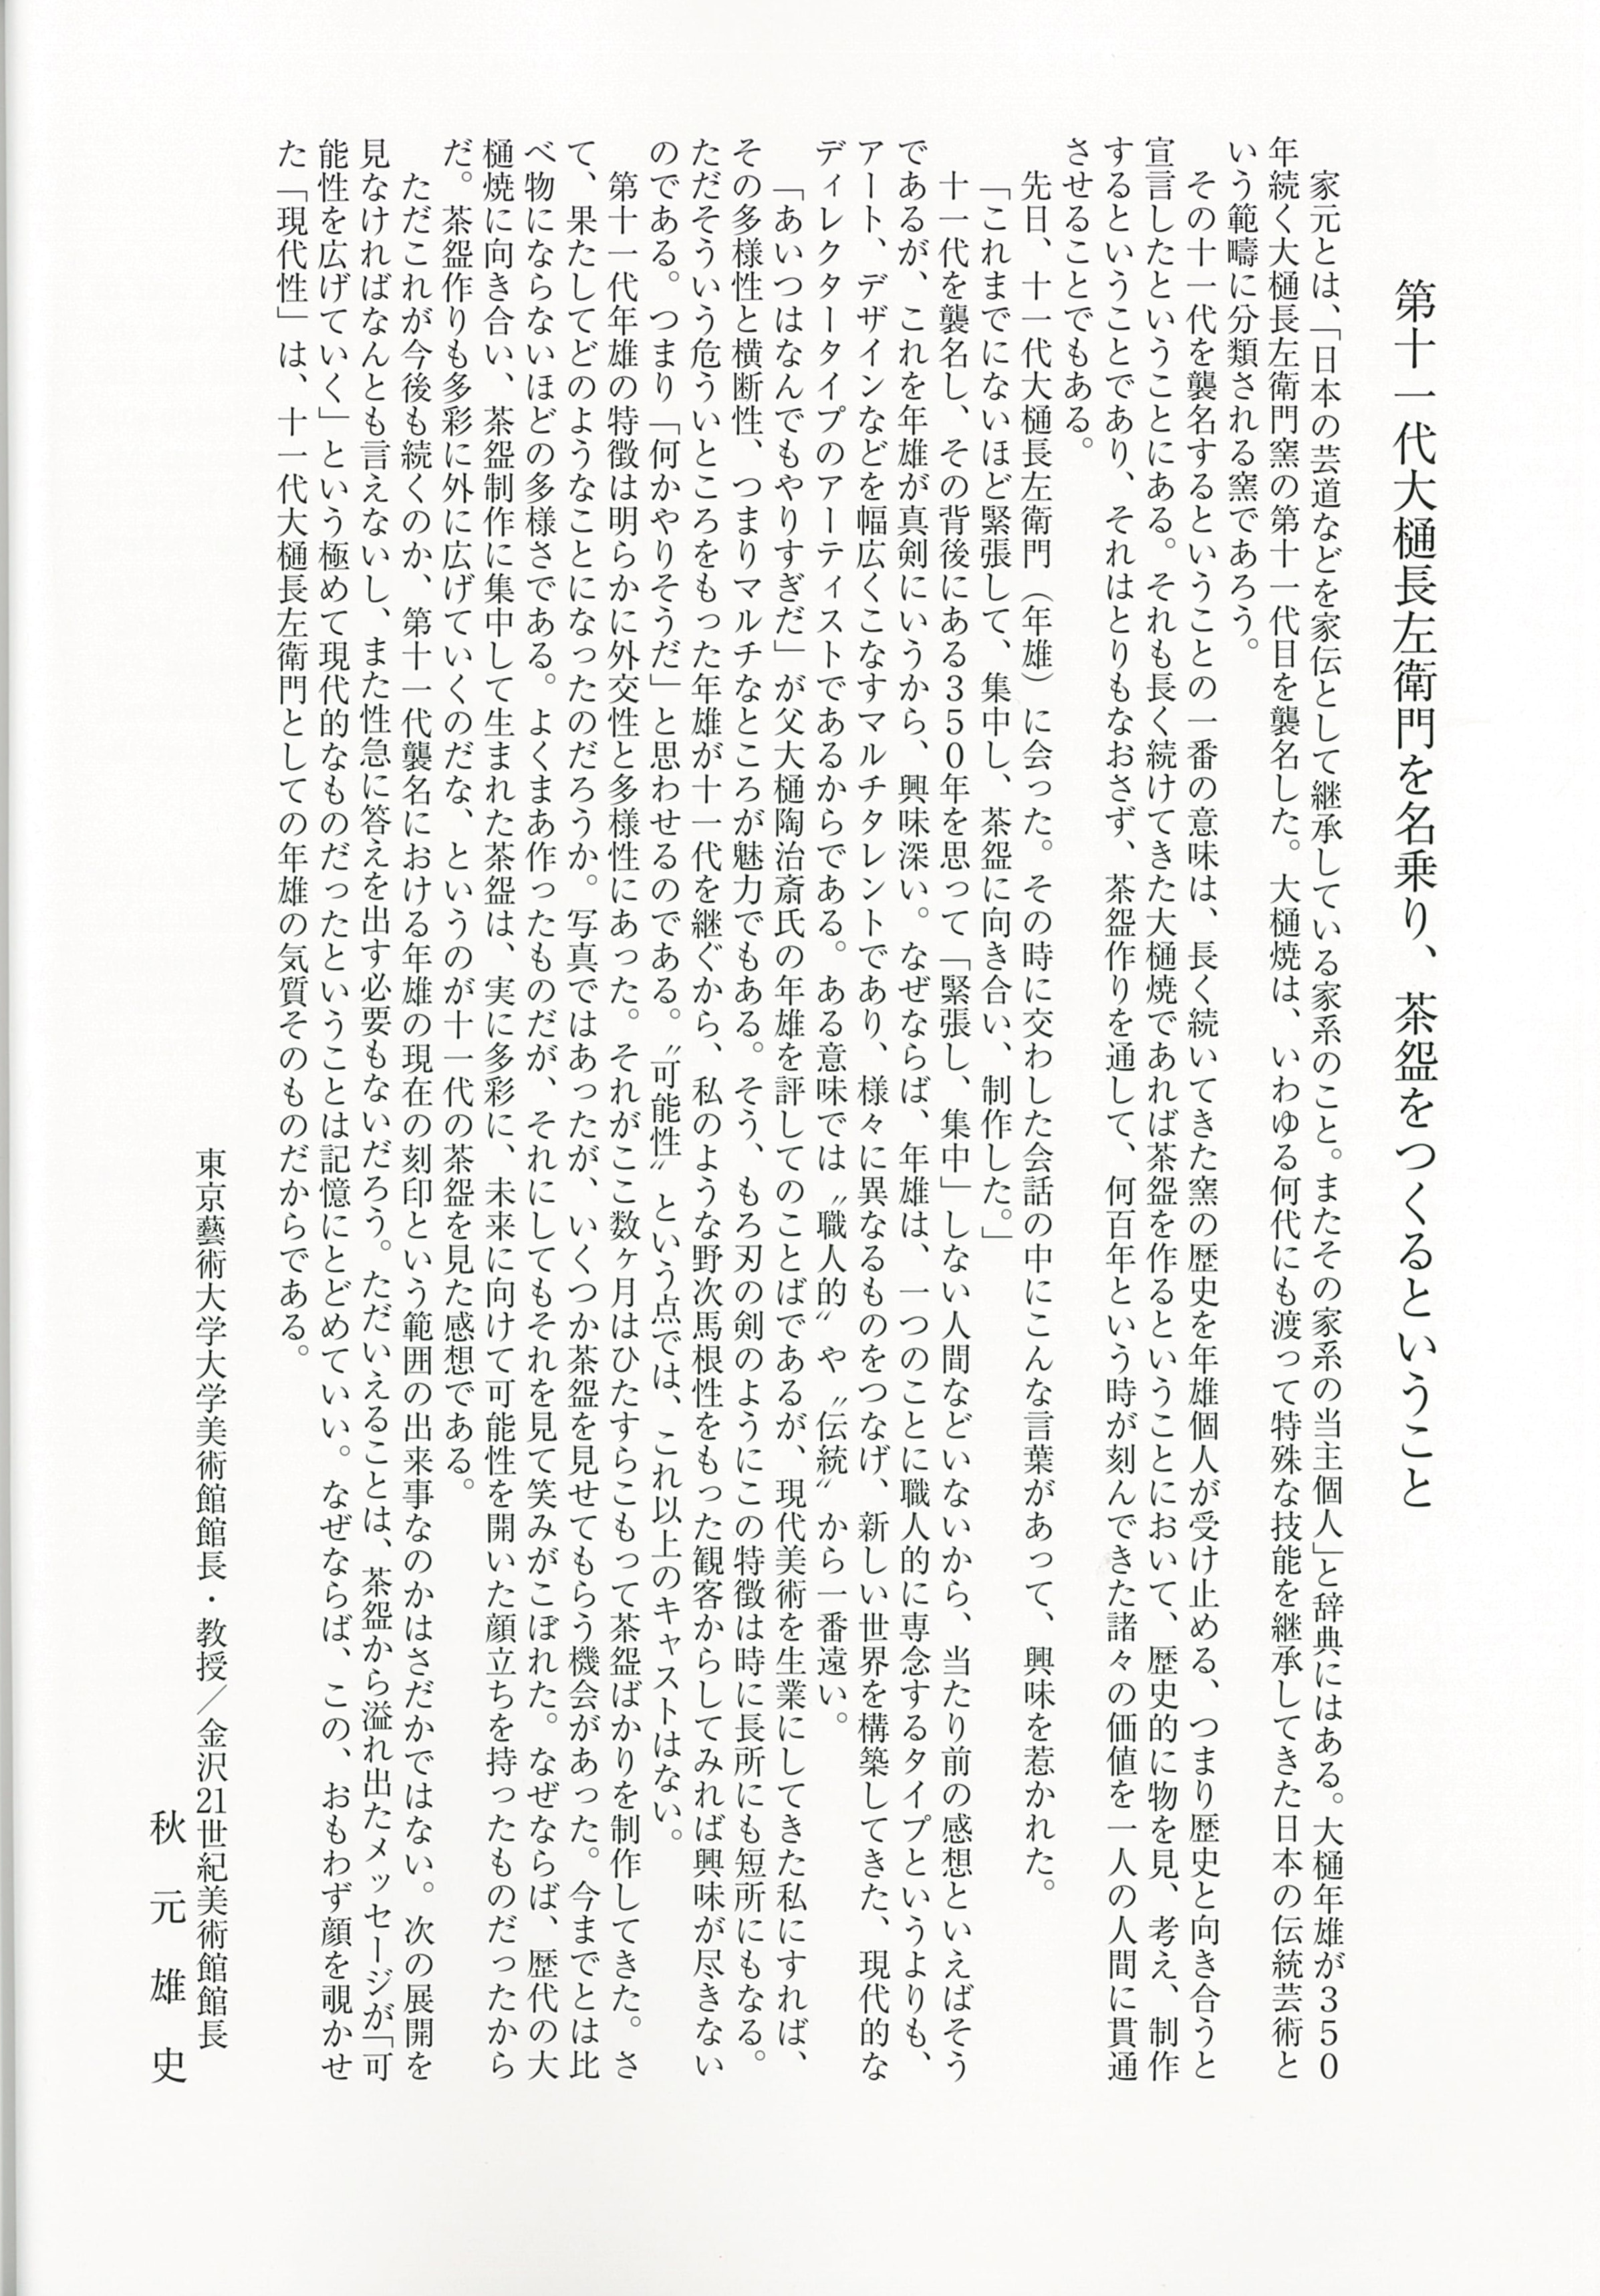 第十一代大樋長左衛門を名乗り、茶盌をつくるということ
家元とは、「日本の芸道などを家伝として継承している家系のこと。またその家系の当主個人」と辞典にはある。大樋年雄が350
年続く大樋長左衛門窯の第十一代目を襲名した。大樋焼は、いわゆる何代にも渡って特殊な技能を継承してきた日本の伝統芸術と
いう範疇に分類される窯であろう。
その十一代を襲名するということの一番の意味は、長く続いてきた窯の歴史を年雄個人が受け止める、つまり歴史と向き合うと
宣言したということにある。それも長く続けてきた大樋焼であれば茶盌を作るということにおいて、歴史的に物を見、考え、制作
するということであり、それはとりもなおさず、茶盌作りを通して、何百年という時が刻んできた諸々の価値を一人の人間に貫通
させることでもある。
先日、十一代大樋長左衛門（年雄）に会った。その時に交わした会話の中にこんな言葉があって、興味を惹かれた。
「これまでにないほど緊張して、集中し、茶盌に向き合い、制作した。」
十一代を襲名し、その背後にある350年を思って「緊張し、集中」しない人間などいないから、当たり前の感想といえばそう
であるが、これを年雄が真剣にいうから、興味深い。なぜならば、年雄は、一つのことに職人的に専念するタイプというよりも、
アート、デザインなどを幅広くこなすマルチタレントであり、様々に異なるものをつなげ、新しい世界を構築してきた、現代的な
ディレクタータイプのアーティストであるからである。ある意味では〝職人的〟や〝伝統〟から一番遠い。
「あいつはなんでもやりすぎだ」が父大樋陶治斎氏の年雄を評してのことばであるが、現代美術を生業にしてきた私にすれば、
その多様性と横断性、つまりマルチなところが魅力でもある。そう、もろ刃の剣のようにこの特徴は時に長所にも短所にもなる。
ただそういう危ういところをもった年雄が十一代を継ぐから、私のような野次馬根性をもった観客からしてみれば興味が尽きない
のである。つまり「何かやりそうだ」と思わせるのである。〝可能性〟という点では、これ以上のキャストはない。
第十一代年雄の特徴は明らかに外交性と多様性にあった。それがここ数ヶ月はひたすらこもって茶盌ばかりを制作してきた。さ
て、果たしてどのようなことになったのだろうか。写真ではあったが、いくつか茶盌を見せてもらう機会があった。今までとは比
べ物にならないほどの多様さである。よくまあ作ったものだが、それにしてもそれを見て笑みがこぼれた。なぜならば、歴代の大
樋焼に向き合い、茶盌制作に集中して生まれた茶盌は、実に多彩に、未来に向けて可能性を開いた顔立ちを持ったものだったから
だ。茶盌作りも多彩に外に広げていくのだな、というのが十一代の茶盌を見た感想である。
ただこれが今後も続くのか、第十一代襲名における年雄の現在の刻印という範囲の出来事なのかはさだかではない。次の展開を
見なければなんとも言えないし、また性急に答えを出す必要もないだろう。ただいえることは、茶盌から溢れ出たメッセージが「可
能性を広げていく」という極めて現代的なものだったということは記憶にとどめていい。なぜならば、この、おもわず顔を覗かせ
た「現代性」は、十一代大樋長左衛門としての年雄の気質そのものだからである。
東京藝術大学大学美術館館長・教授／金沢21世紀美術館館長
秋元雄史